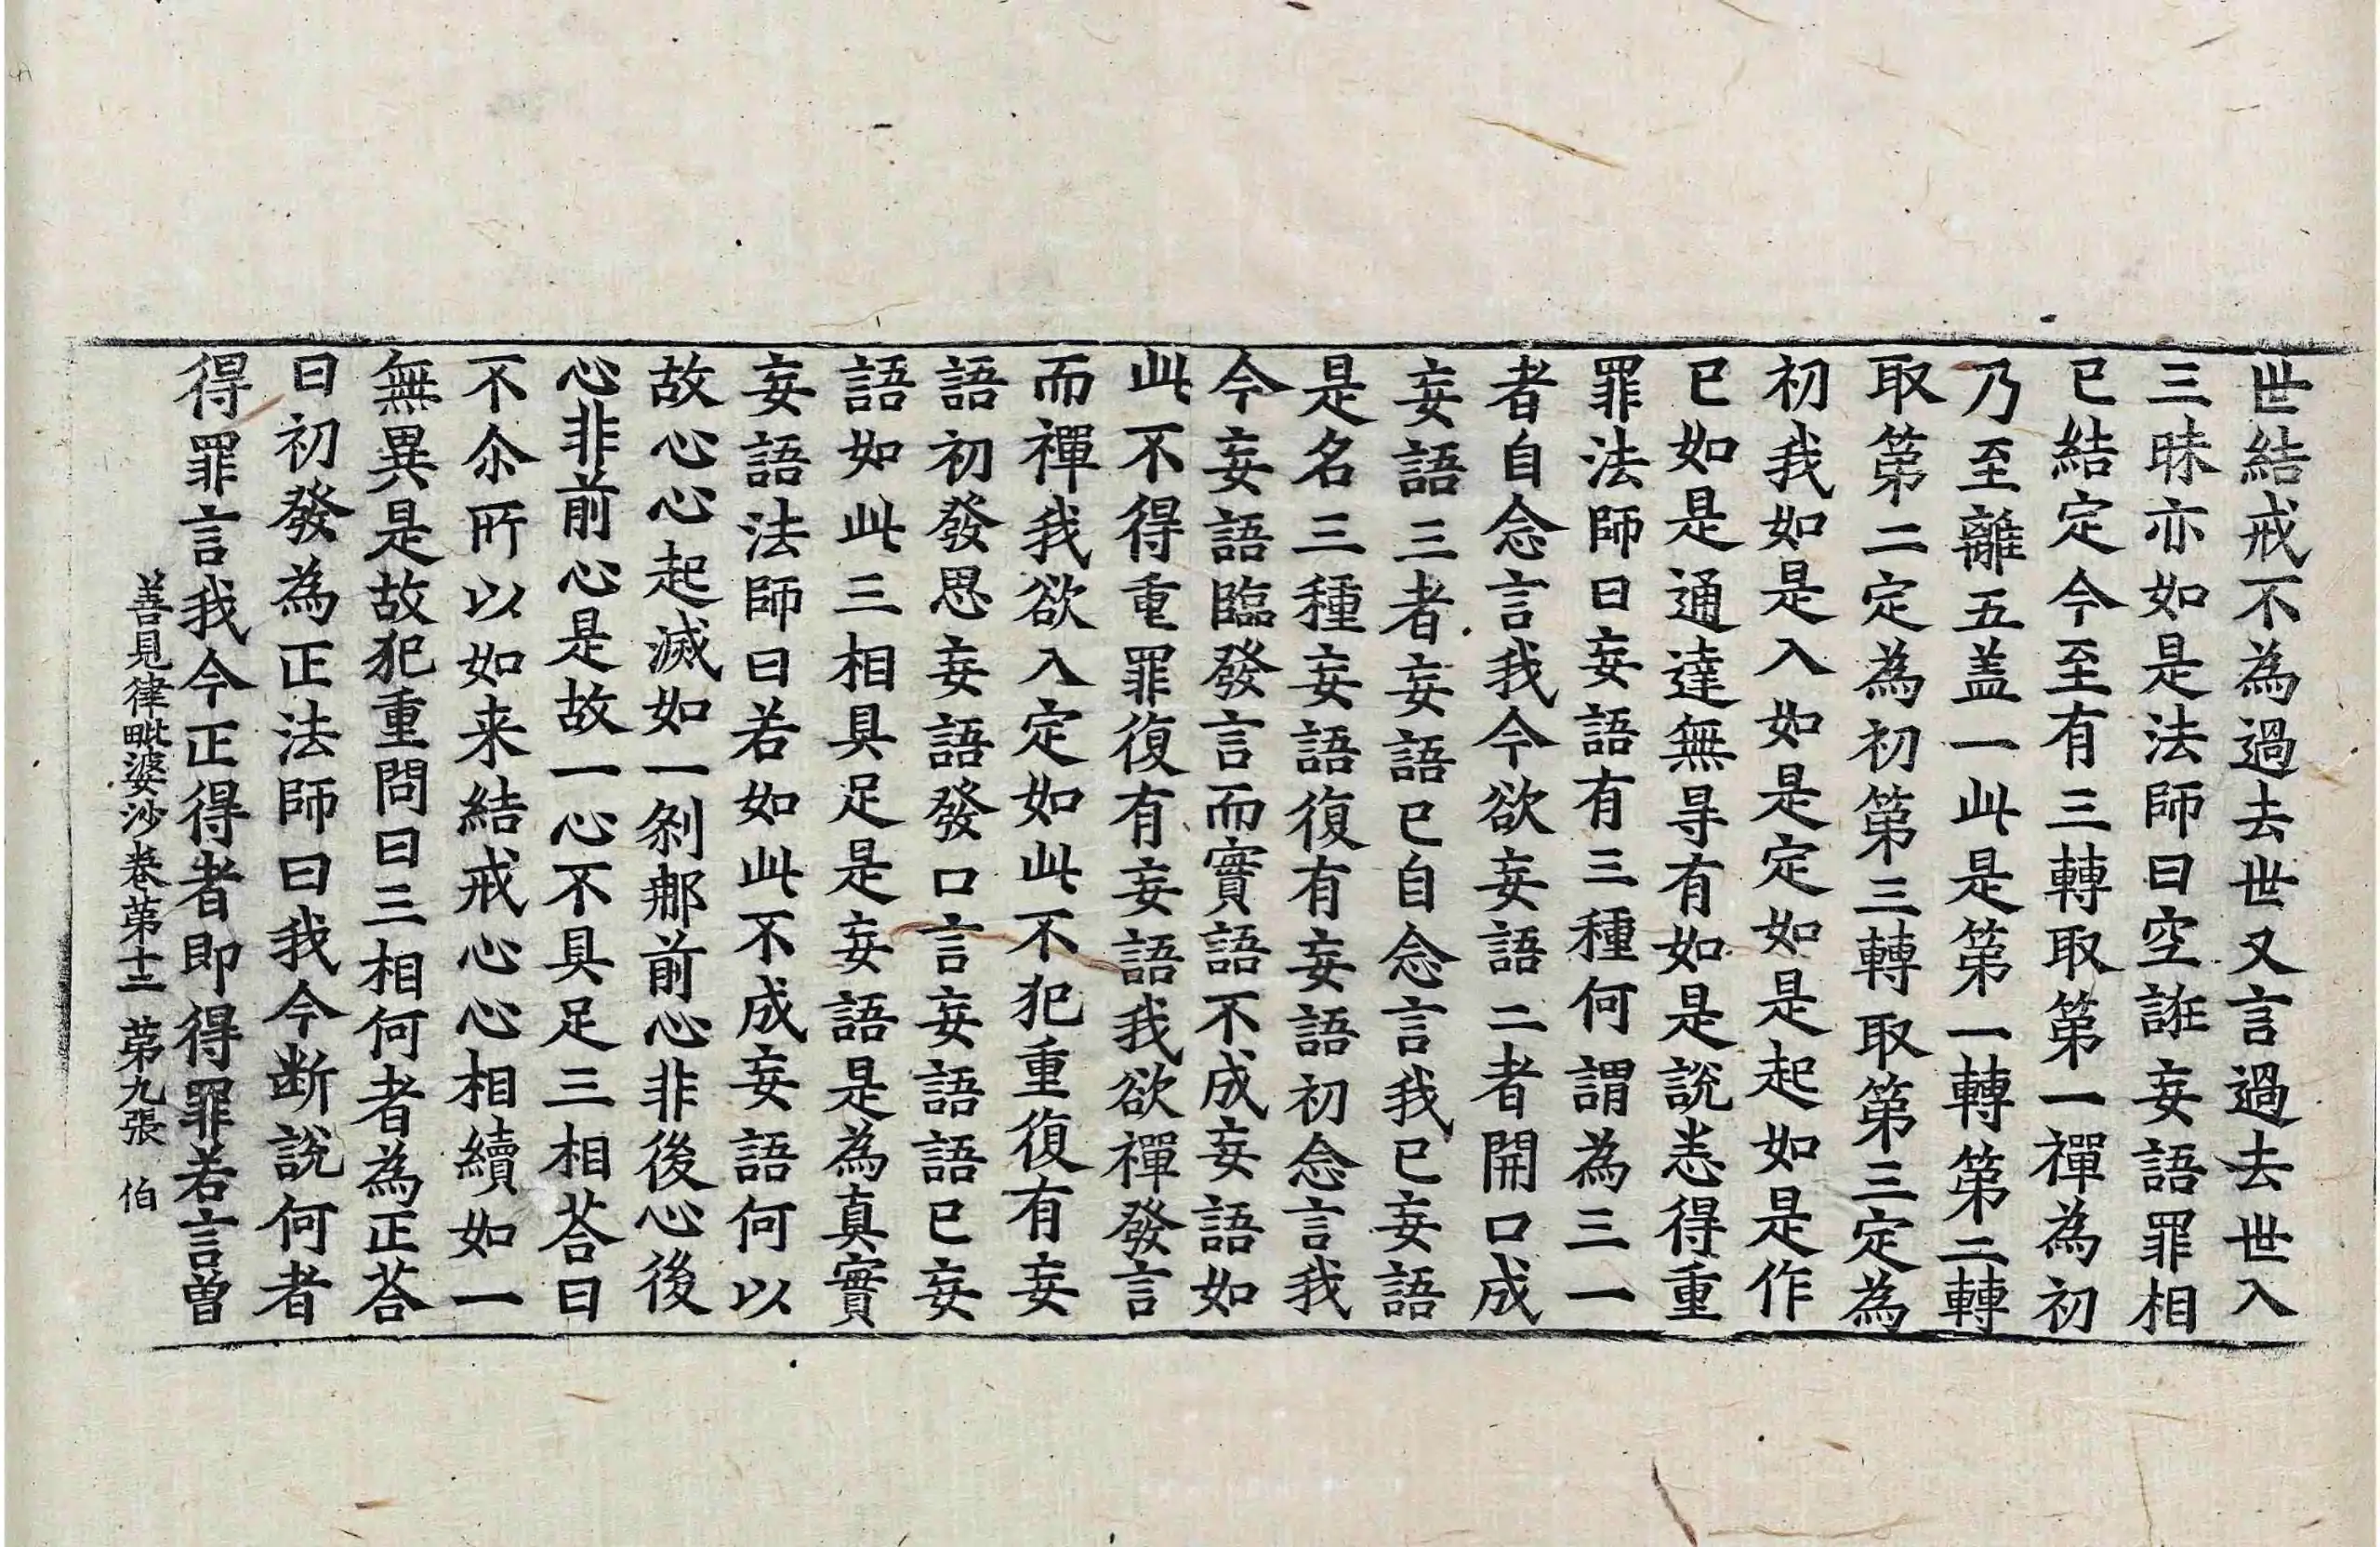 世結戒不為過去世又言過去世入
三昧亦如是法師曰空誑妄語罪相
已結定今至有三轉取第一禪為初
乃至離五盖一此是第一轉第二轉
取第二定為初第三轉取第三定為
初我如是入如是定如是起如是作
已如是通達無㝵有如是說悉得重
罪法師曰妄語有三種何謂為三一
者自念言我今欲妄語二者開口成
妄語三者妄語已自念言我已妄語
是名三種妄語復有妄語初念言我
今妄語臨發言而實語不成妄語如
此不得重罪復有妄語我欲禪發言
而禪我欲入定如此不犯重復有妄
語初發思妄語發口言妄語語已妄
語如此三相具足是妄語是為真實
妄語法師曰若如此不成妄語何以
故心心起滅如一剎那前心非後心後
心非前心是故一心不具足三相荅曰
不尒所以如来結戒心心相續如一
無異是故犯重問曰三相何者為正荅
曰初發為正法師曰我今断說何者
得罪言我今正得者即得罪若言曾
善見律毗婆沙卷第十二 第九張 伯